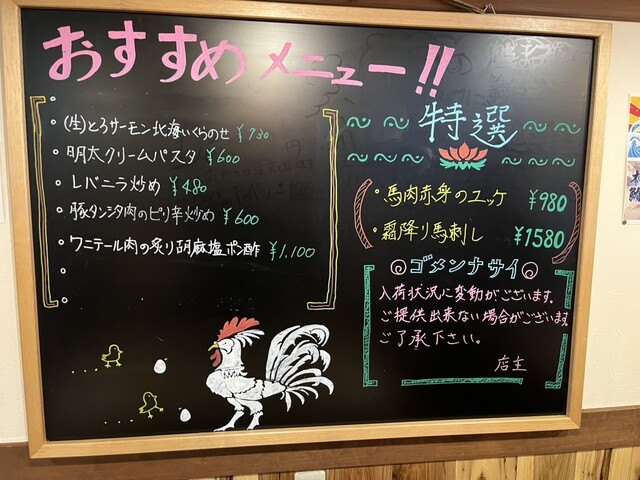 おすすめメニュー!!
(生)とろサーモン北海いくらのせ ¥730
明太クリームパスタ ¥600
レバニラ炒め ¥480
豚タンシタ肉のピリ辛炒め ¥600
ワニテール肉の炙り胡麻塩ポン酢 ¥1,100
特選
・馬肉赤身のユッケ ¥980
・霜降り馬刺し ¥1580
ゴメンナサイ
入荷状況に変動がございます。
ご提供出来ない場合がございます。
ご了承下さい。
店主